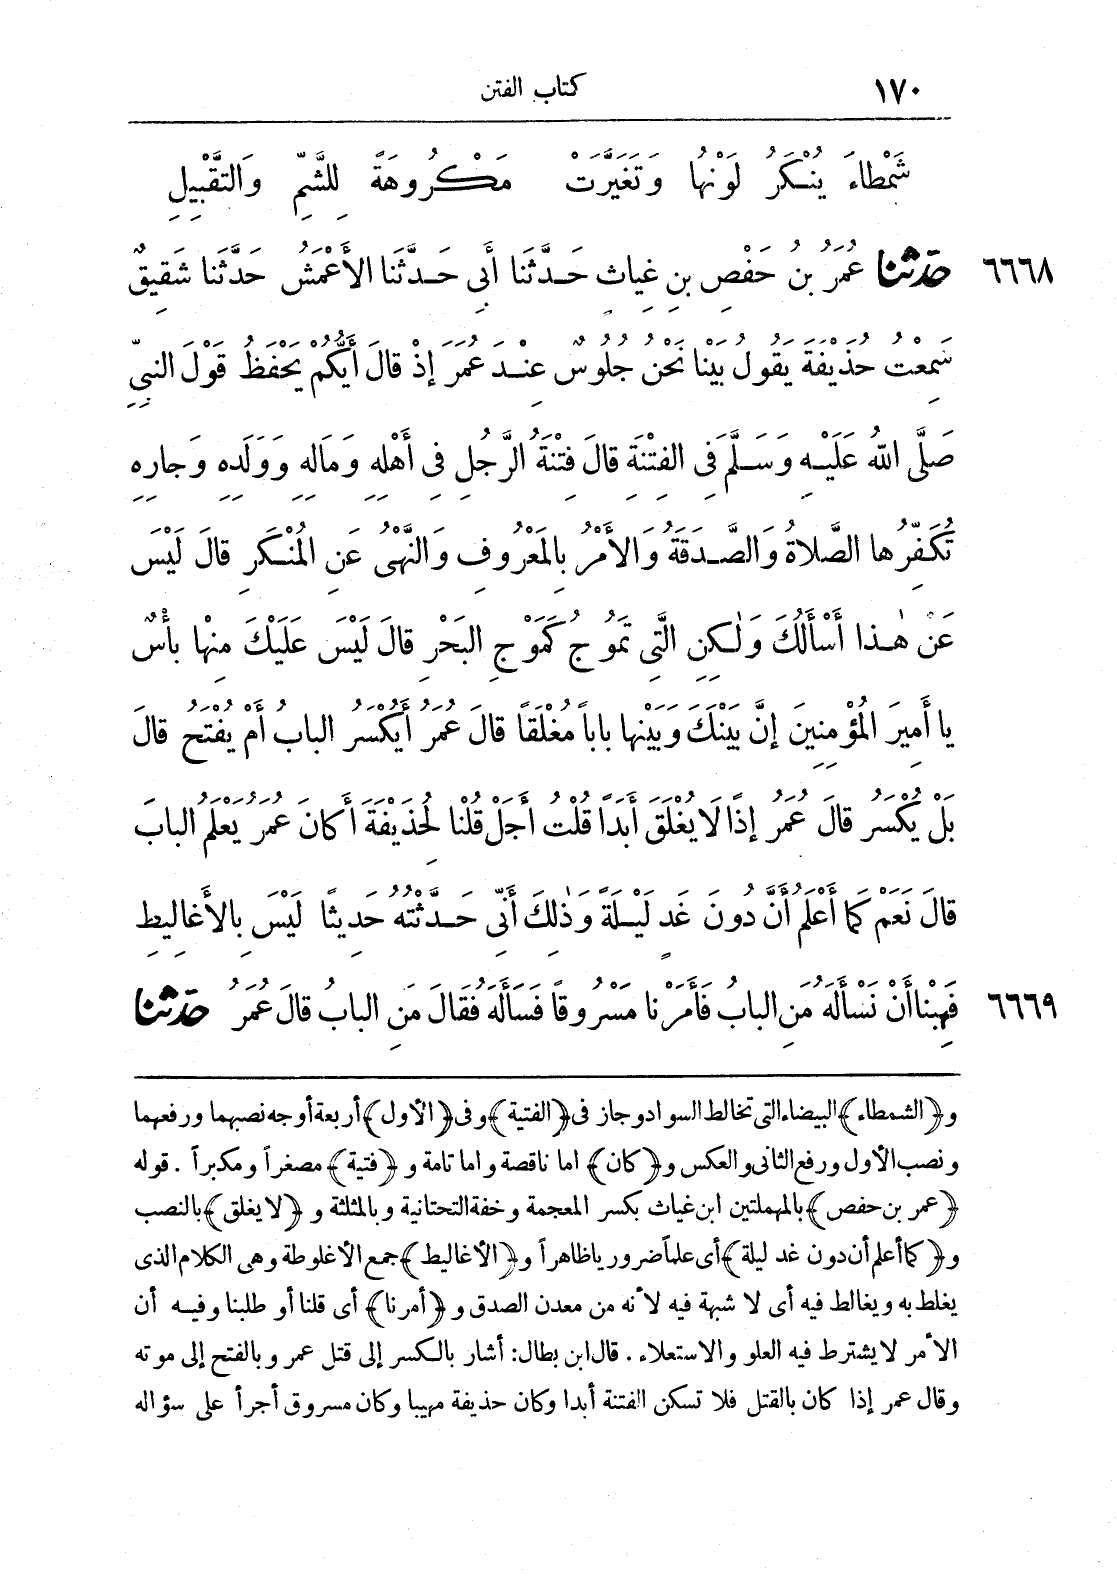 ١٧٠ كتاب الفتن
شَمْطاءَ يُنْكَرُ لَوْنُها وَتَغَيَّرَتْ مَكْرُوهَةً لِلشَّمِّ وَالتَّقْبِيلِ
٦٦٦٨ حَدَّثَنا عُمَرُ بنُ حَفْصِ بنِ غِياثٍ حَدَّثَنا أَبِي حَدَّثَنا الأَعْمَشُ حَدَّثَنا شَقِيقٌ
سَمِعْتُ حُذَيْفَةَ يَقُولُ بَيْنا نَحْنُ جُلُوسٌ عِنْدَ عُمَرَ إِذْ قالَ أَيُّكُمْ يَحْفَظُ قَوْلَ النبيِّ
صَلَّى اللهُ عَلَيْهِ وَسَلَّمَ فِي الفِتْنَةِ قالَ فِتْنَةُ الرَّجُلِ فِي أَهْلِهِ وَمَالِهِ وَوَلَدِهِ وَجارِهِ
تُكَفِّرُها الصَّلاةُ وَالصَّدَقَةُ وَالأَمْرُ بِالمَعْرُوفِ وَالنَّهْىُ عَنِ المُنْكَرِ قالَ لَيْسَ
عَنْ هٰذا أَسْأَلُكَ وَلٰكِنِ الَّتِي تَمُوجُ كَمَوْجِ البَحْرِ قالَ لَيْسَ عَلَيْكَ مِنْها بأْسٌ
يا أَمِيرَ المُؤْمِنِينَ إِنَّ بَيْنَكَ وَبَيْنَها باباً مُغْلَقاً قالَ عُمَرُ أَيُكْسَرُ البابُ أَمْ يُفْتَحُ قالَ
بَلْ يُكْسَرُ قالَ عُمَرُ إِذًا لَا يُغْلَقَ أَبَدًا قُلْتُ أَجَلْ قُلْنا لِحُذَيْفَةَ أَكانَ عُمَرُ يَعْلَمُ البابَ
قالَ نَعَمْ كَما أَعْلَمُ أَنَّ دُونَ غَدٍ لَيْلَةً وَذٰلِكَ أَنِّي حَدَّثْتُهُ حَدِيثًا لَيْسَ بِالأَغالِيطِ
٦٦٦٩ فَهِبْنا أَنْ نَسْأَلَهُ مَنِ البابُ فَأَمَرْنا مَسْرُوقاً فَسَأَلَهُ فَقالَ مَنِ البابُ قالَ عُمَرُ حَدَّثَنا
و﴿الشمطاء﴾ البيضاء التى تخالط السواد وجاز فى﴿الفتية﴾ وفى ﴿الأول﴾ أربعة أوجه نصبهما ورفعهما
ونصب الأول ورفع الثانى والعكس و﴿كان﴾ اما ناقصة واما تامة و ﴿فتية﴾ مصغراً ومكبراً. قوله
﴿عمر بن حفص﴾ بالمهملتين ابن غياث بكسر المعجمة وخفة التحتانية وبالمثلثة و ﴿لا يغلق﴾ بالنصب
و﴿كما أعلم أن دون غد ليلة﴾ أى علماً ضروريا ظاهراً و﴿الأغاليط﴾ جمع الأغلوطة وهى الكلام الذى
يغلط به ويغالط فيه أى لا شبهة فيه لأنه من معدن الصدق و ﴿أمرنا﴾ أى قلنا أو طلبنا وفيه أن
الأمر لا يشترط فيه العلو والاستعلاء. قال ابن بطال: أشار بالكسر إلى قتل عمر وبالفتح إلى موته
وقال عمر إذا كان بالقتل فلا تسكن الفتنة أبدا وكان حذيفة مهيبا وكان مسروق أجرأ على سؤاله